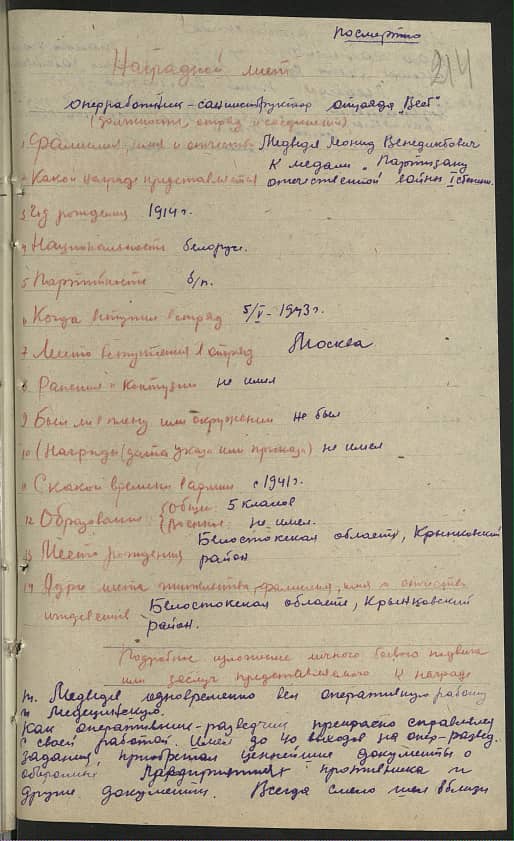 посмертно
214
Наградной лист
оперработник-санинструктор отряда "Вест"
(должность, отряд и соединений)
1 Фамилия, имя и отчество Медведя Леонид Венедиктович
К медали "Партизану
2 Какой награде представляется отечественной войны I степени.
3 Год рождения 1914 г.
4 Национальность белорус.
5 Партийность б/п.
6 Когда вступил в отряд 5/V-1943 г.
7 Место вступления в отряд Москва
8 Ранения и контузии не имел
9 Был ли в плену или окружении не был
10 (Награды (дата указа или приказа) не имел
11 С какого времени в армии с 1941 г.
12 Образование {Общее 5 классов
{Военное не имел.
Белостокская область, Крынковский
13 Место рождения район
14 Адрес места жительства, фамилия, имя и отчество
иждевенцев Белостокская область, Крынковский
район.
Подробное изложение личного боевого подвига
или заслуг представляемого к награде
т. Медведя одновременно вел оперативную работу
и медецинскую.
Как оперативник-разведчик прекрасно справлялся
с своей работой. Имел до 40 выходов на опер-развед.
задания, приобретал ценнейшие документы о
обороник противника и
другие документы. Всегда смело шел вблизи